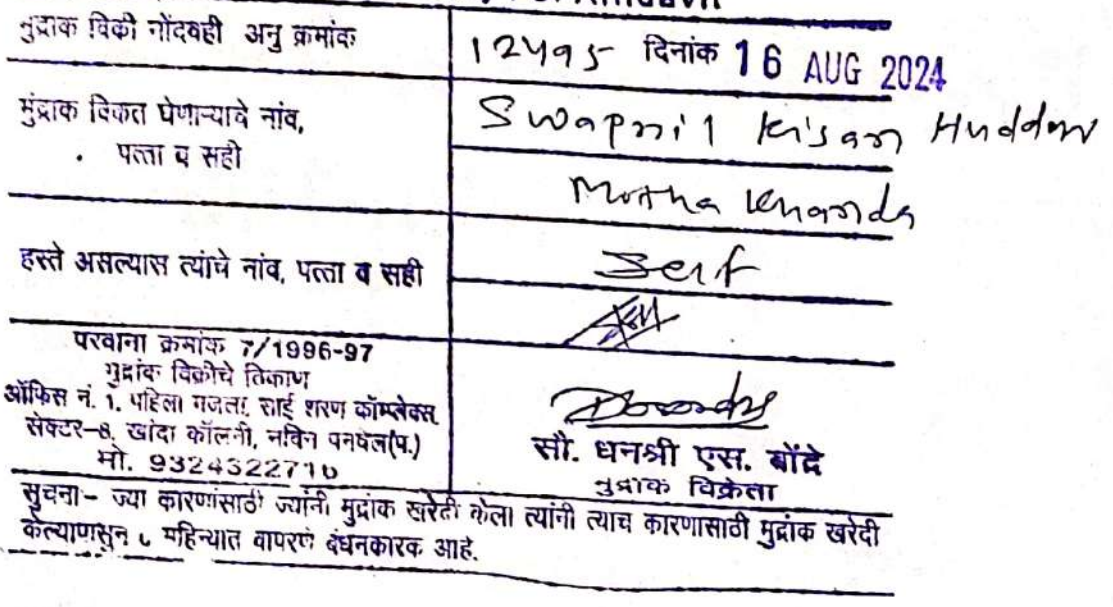 Affidavit
मुद्रांक विक्री नोंदवही अनु क्रमांक 12495 दिनांक 16 AUG 2024
मुंद्राक विकत घेणाऱ्याचे नांव, Swapnil Kisan Huddar
पत्ता व सही
Motha Khanda
हस्ते असल्यास त्यांचे नांव, पत्ता व सही Self
परवाना क्रमांक 7/1996-97
मुद्रांक विक्रीचे ठिकाण
ऑफिस नं. 1, पहिला मजला, साई शरण कॉम्प्लेक्स,
सेक्टर-8, खांदा कॉलनी, नविन पनवेल(प.)
मो. 9324322710
सौ. धनश्री एस. बोंद्रे
मुद्रांक विक्रेता
सुचना- ज्या कारणांसाठी ज्यांनी मुद्रांक खरेदी केला त्यांनी त्याच कारणासाठी मुद्रांक खरेदी
केल्यापासुन महिन्यात वापरणे बंधनकारक आहे.